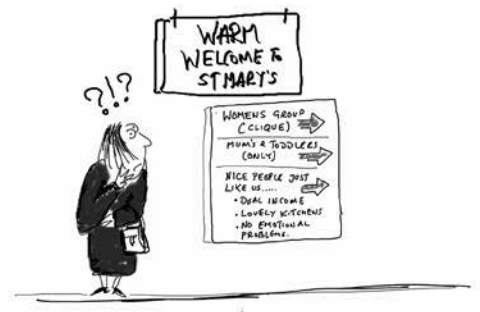 WARM
WELCOME to
ST MARY'S
?!?
WOMENS GROUP
(CLIQUE)
MUM'S & TODDLERS
(ONLY)
NICE PEOPLE JUST
LIKE US.....
• DUAL INCOME
• LOVELY KITCHENS
• NO EMOTIONAL
PROBLEMS.